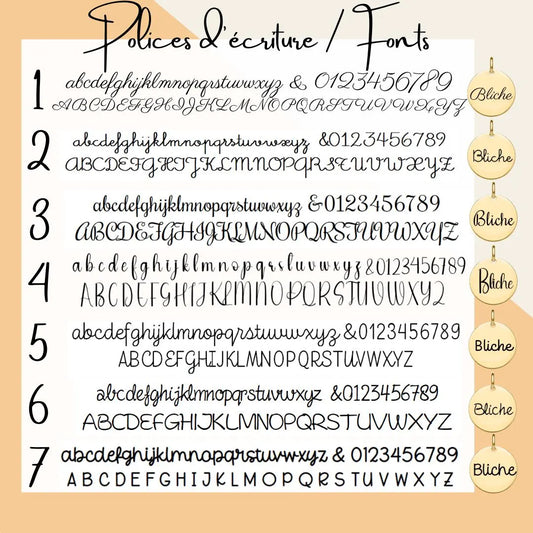 Polices d'écriture / Fonts
1 abcdefghijklmnopqrstuvwxyz & 0123456789
ABCDEFGHIJKLMNOPQRSTUVWXYZ
Bliche
2 abcdefghijklmnopqrstuvwxyz &0123456789
ABCDEFGHIJKLMNOPQRSTUVWXYZ
Bliche
3 abcdefghijklmnopqrstuvwxyz &0123456789
ABCDEFGHIJKLMNOPQRSTUVWXYZ
Bliche
4 abcdefghijklmnopqrstuvwxyz&0123456789
ABCDEFGHIJKLMNOPQRSTUVWXYZ
Bliche
5 abcdefghijklmnopqrstuvwxyz &0123456789
ABCDEFGHIJKLMNOPQRSTUVWXYZ
Bliche
6 abcdefghijklmnopqrstuvwxyz &0123456789
ABCDEFGHIJKLMNOPQRSTUVWXYZ
Bliche
7 abcdefghijklmnopqrstuvwxyz & 0123456789
ABCDEFGHIJKLMNOPQRSTUVWXYZ
Bliche